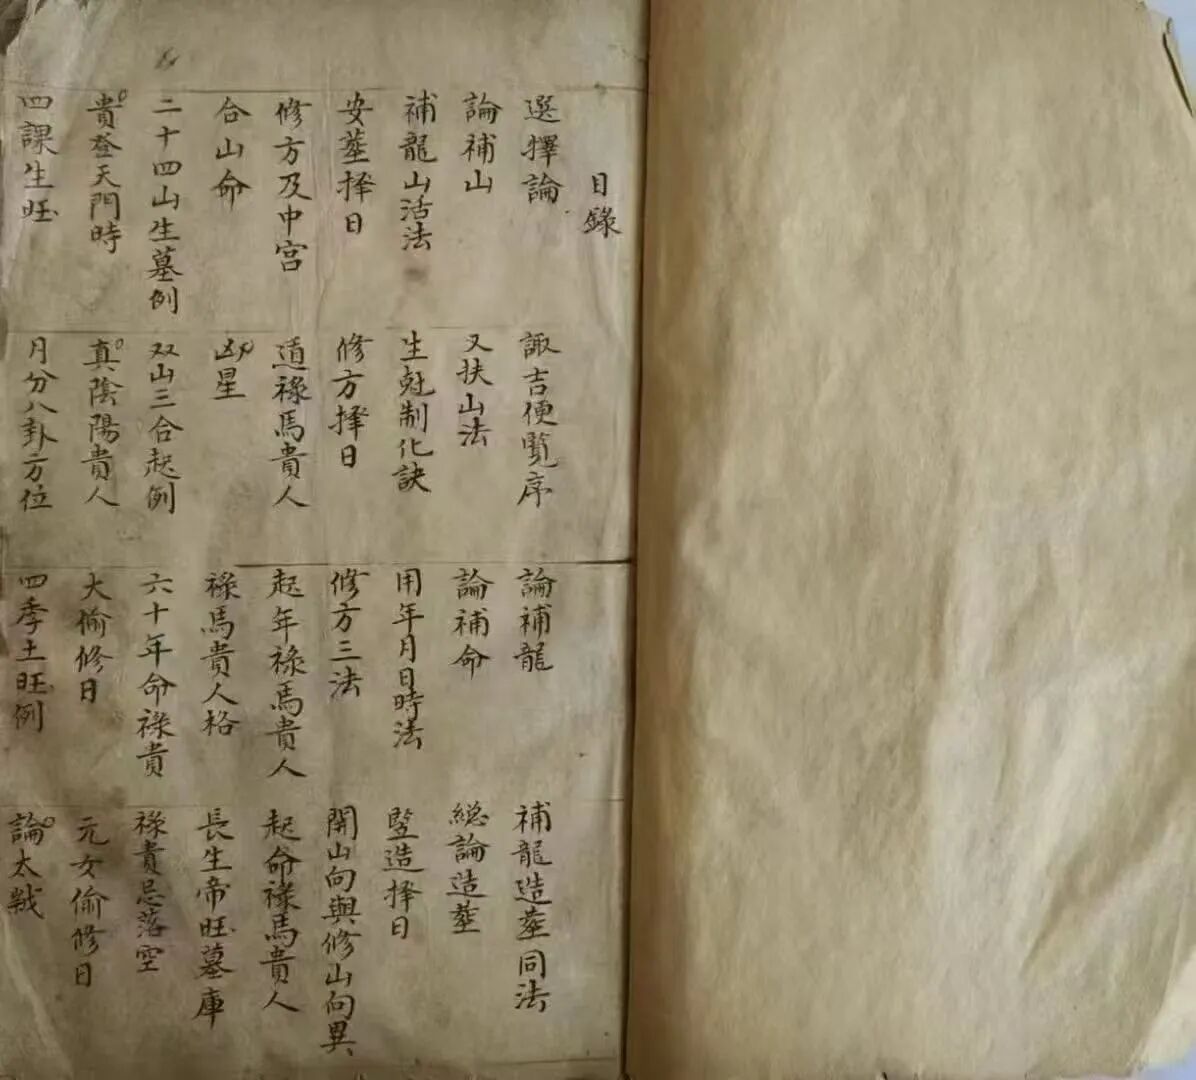 目錄
選擇論 諏吉便覧序 論補龍 補龍造塟同法
論補山 又扶山法 論補命 総論造塟
補龍山活法 生尅制化訣 用年月日時法 竪造择日
安塟择日 修方择日 修方三法 開山向與修山向異
修方及中宮 道祿馬貴人 起年祿馬貴人 起命祿馬貴人
合山命 凶星 祿馬貴人格 長生帝旺墓庫
二十四山生墓例 双山三合起例 六十年命祿貴 祿貴忌落空
貴登天門時 真陰陽貴人 大偷修日 元女偷修日
四課生旺 月分八卦方位 四季土旺例 論太歲